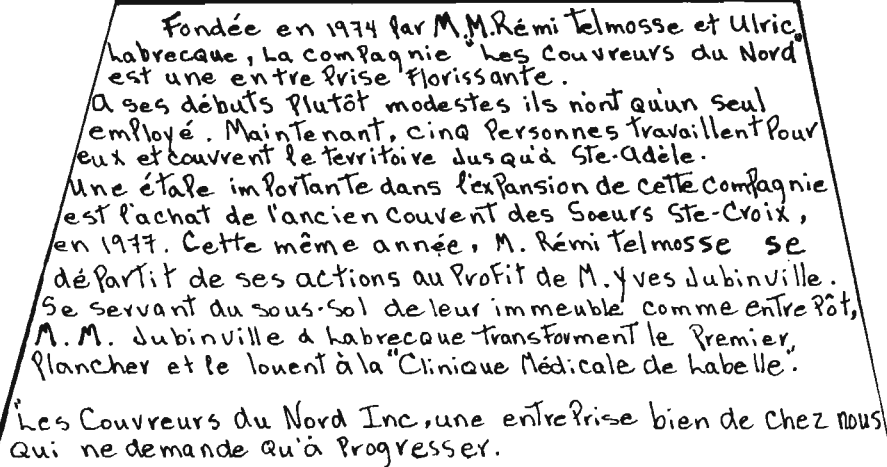 Fondée en 1974 par M.M. Rémi Telmosse et Ulric
Labrecque, La compagnie "Les Couvreurs du Nord"
est une entreprise florissante.
A ses débuts plutôt modestes ils n'ont qu'un seul
employé. Maintenant, cinq personnes travaillent pour
eux et couvrent le territoire jusqu'à Ste-Adèle.
Une étape importante dans l'expansion de cette compagnie
est l'achat de l'ancien couvent des Soeurs Ste-Croix,
en 1977. Cette même année, M. Rémi Telmosse se
départit de ses actions au profit de M. Yves Jubinville.
Se servant du sous-sol de leur immeuble comme entrepôt,
M.M. Jubinville & Labrecque transforment le premier
plancher et le louent à la "Clinique Médicale de Labelle".
"Les Couvreurs du Nord Inc, une entreprise bien de chez nous
qui ne demande qu'à progresser.